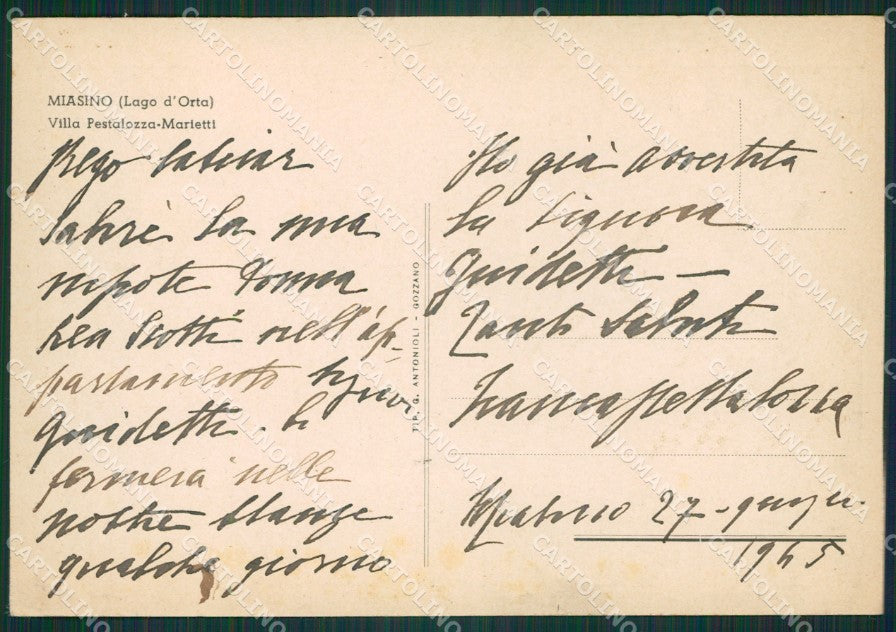 MIASINO (Lago d'Orta)
Villa Pestalozza-Marietti
Prego lasciar
salire la mia
nipote Donna
Lea Scotti nell'ap-
partamento Signori
Guidetti. Si
fermerà nelle
nostre stanze
qualche giorno
TIP. G. ANTONIOLI - GOZZANO
Ho già avvertita
la Signora
Guidetti —
Tanti saluti
Franca Pestalozza
27 - giugno
1965
CARTOLINOMANIA